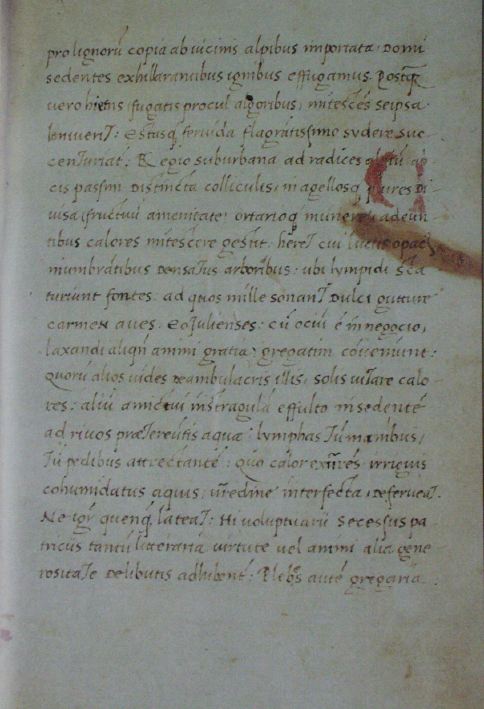 pro lignorū copia ab uicinis alpibus importata. Domi
sedentes exhillarantibus ignibus effugamus. Postq̄
uero hiems, fugatis procul algoribus, mitescēs seipsā
leniuerit: Estasq̄ feruida flagrātissimo sydere suc
centuriat: Regio suburbana ad radices
cis passim distincta colliculis, in agellosq̄ plures Di
uisa, fructuū amenitate. ortatioq̄ munere, adeun
tibus calores mitescere gestit. heret cui lucus opac
niumbrātibus Densatus arboribus. ubi lympidi sca
turiunt fontes. ad quos mille sonant Dulci guture
carmen aues. Eo Julienses: cū ocui ē in negocio,
laxandi aliqn̄ animi gratia, gregatim cōueniunt:
Quorū alios uides deambulacris illis, solis uitare calo
res. aliū amictui instragulā effulto insedentē
ad riuos prætereūtis aquæ. lymphas Tū manibus,
Tū pedibus attrectantē. quo calor irriguis
cohumidatus aquis, interfecta, Deferueat.
Ne igr̄ quenq̄ lateat: Hi uoluptuarii Secessus pa
tricus tantū litterariā uirtute uel animi alia gene
rositate Delibutis adhibent̄. Plebs autē gregaria